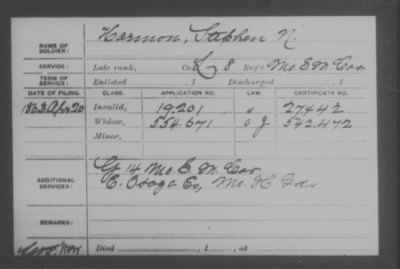 NAME OF SOLDIER: Harmon, Stephen N.
SERVICE: Late rank, Co. K 8 Reg't Mo. S. M. Cav
TERM OF SERVICE: Enlisted , 1 Discharged , 1
DATE OF FILING. CLASS. APPLICATION NO. LAW. CERTIFICATE NO.
1883 Apr 20 Invalid, 19.201 27442
Widow, 554.671 g 542.472
Minor,
ADDITIONAL SERVICES: G 14 Mo. S. M. Cav
E. Osage Co, Mo. H Gds
REMARKS:
Died , 1 , at